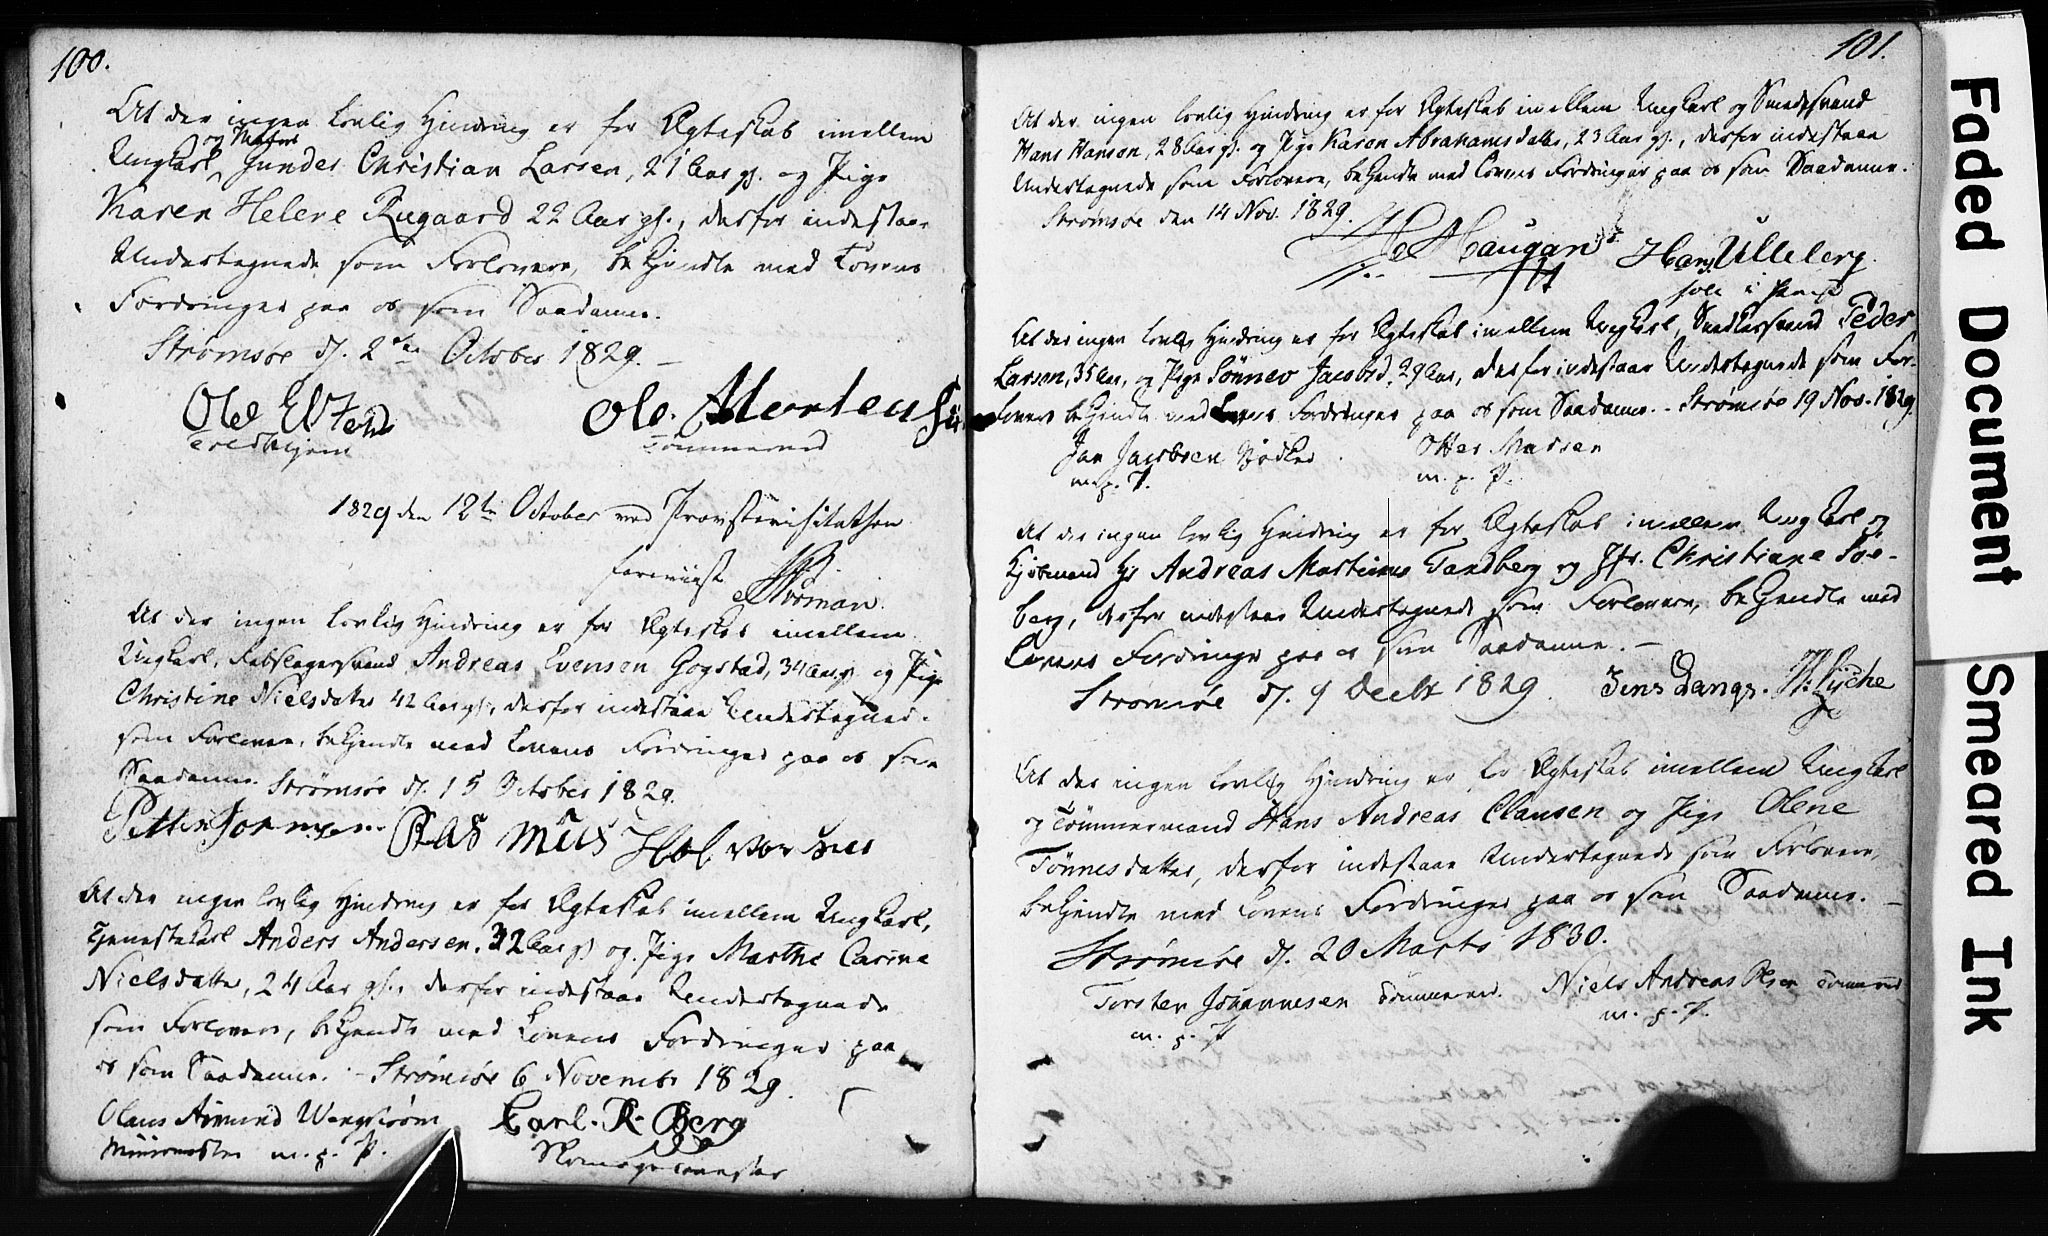 100.
At der ingen lovlig Hindring er for Ægteskab imellem
og Matros
Ungkarl, Gunder Christian Larsen, 21 Aar gl. og Pige
Karen Helene Rugaard 22 Aar gl., derfor indestaae
Undertegnede som Forlovere, bekjendte med Lovens
Fordringer paa os som Saadanne.
Strømsøe d. 2den October 1829. –
Ole Ole Mortensen
Tømmermd
1829 den 12te October ved Provstevisitatsen
foreviist
Strøman.
At der ingen lovlig Hindring er for Ægteskab imellem
Ungkarl, Rebslagersvend Andreas Evensen Gogstad, 34 Aar gl. og Pige
Christine Nielsdatter 42 Aar gl., derfor indestaae Undertegnede
som Forlovere, bekjendte med Lovens Fordringer paa os som
Saadanne. Strømsøe d. 15 October 1829.
Petter
At der ingen lovlig Hindring er for Ægteskab imellem Ungkarl,
Tjenestekarl Anders Andersen, 32 Aar gl. og Pige Marthe Carine
Nielsdatter, 24 Aar gl., derfor indestaae Undertegnede
som Forlovere, bekjendte med Lovens Fordringer paa
os som Saadanne. – Strømsøe 6 Novembr 1829.
Olaus Amund Wengstrøm Carl. R. Berg
Muurmester m. p. P. Skomagermester
101.
At der ingen lovlig Hindring er for Ægteskab imellem Ungkarl og Smedesvend
Hans Hansen, 28 Aar gl. og Pige Karen Abrahamsdatter, 23 Aar gl., derfor indestaae
Undertegnede som Forlovere, bekjendte med Lovens Fordringer paa os som Saadanne.
Strømsøe den 14 Nov. 1829.
Haugan Hans Ulleberg
At der ingen lovlig Hindring er for Ægteskab imellem Ungkarl, Snedkersvend Peder
Larsen, 35 Aar, og Pige Sønnev Jacobsd, 29 Aar, derfor indestaae Undertegnede som For-
lovere bekjendte med Lovens Fordringer paa os som Saadanne. – Strømsøe 19 Nov. 1829.
Jan Jacobsen Bødker Otter Madsen
m. p. P. m. p. P.
At der ingen lovlig Hindring er for Ægteskab imellem Ungkarl og
Kjøbmand Hr Andreas Martinus Tandberg og Jfr. Christiane Soe-
berg, derfor indestaae Undertegnede som Forlovere, bekjendte med
Lovens Fordringer paa os som Saadanne. –
Strømsøe d. 9 Decbr 1829 Jens Lange. Lyche
At der ingen lovlig Hindring er for Ægteskab imellem Ungkarl
og Tømmermand Hans Andreas Clausen og Pige Olene
Tønnesdatter, derfor indestaae Undertegnede som Forlovere,
bekjendte med Lovens Fordringer paa os som Saadanne. –
Strømsøe d. 20 Marts 1830.
Torsten Johannesen Tømmermd. Niels Andreas Olsen Tømmermd
m. p. P. m. p. P.
Faded Document
Smeared Ink